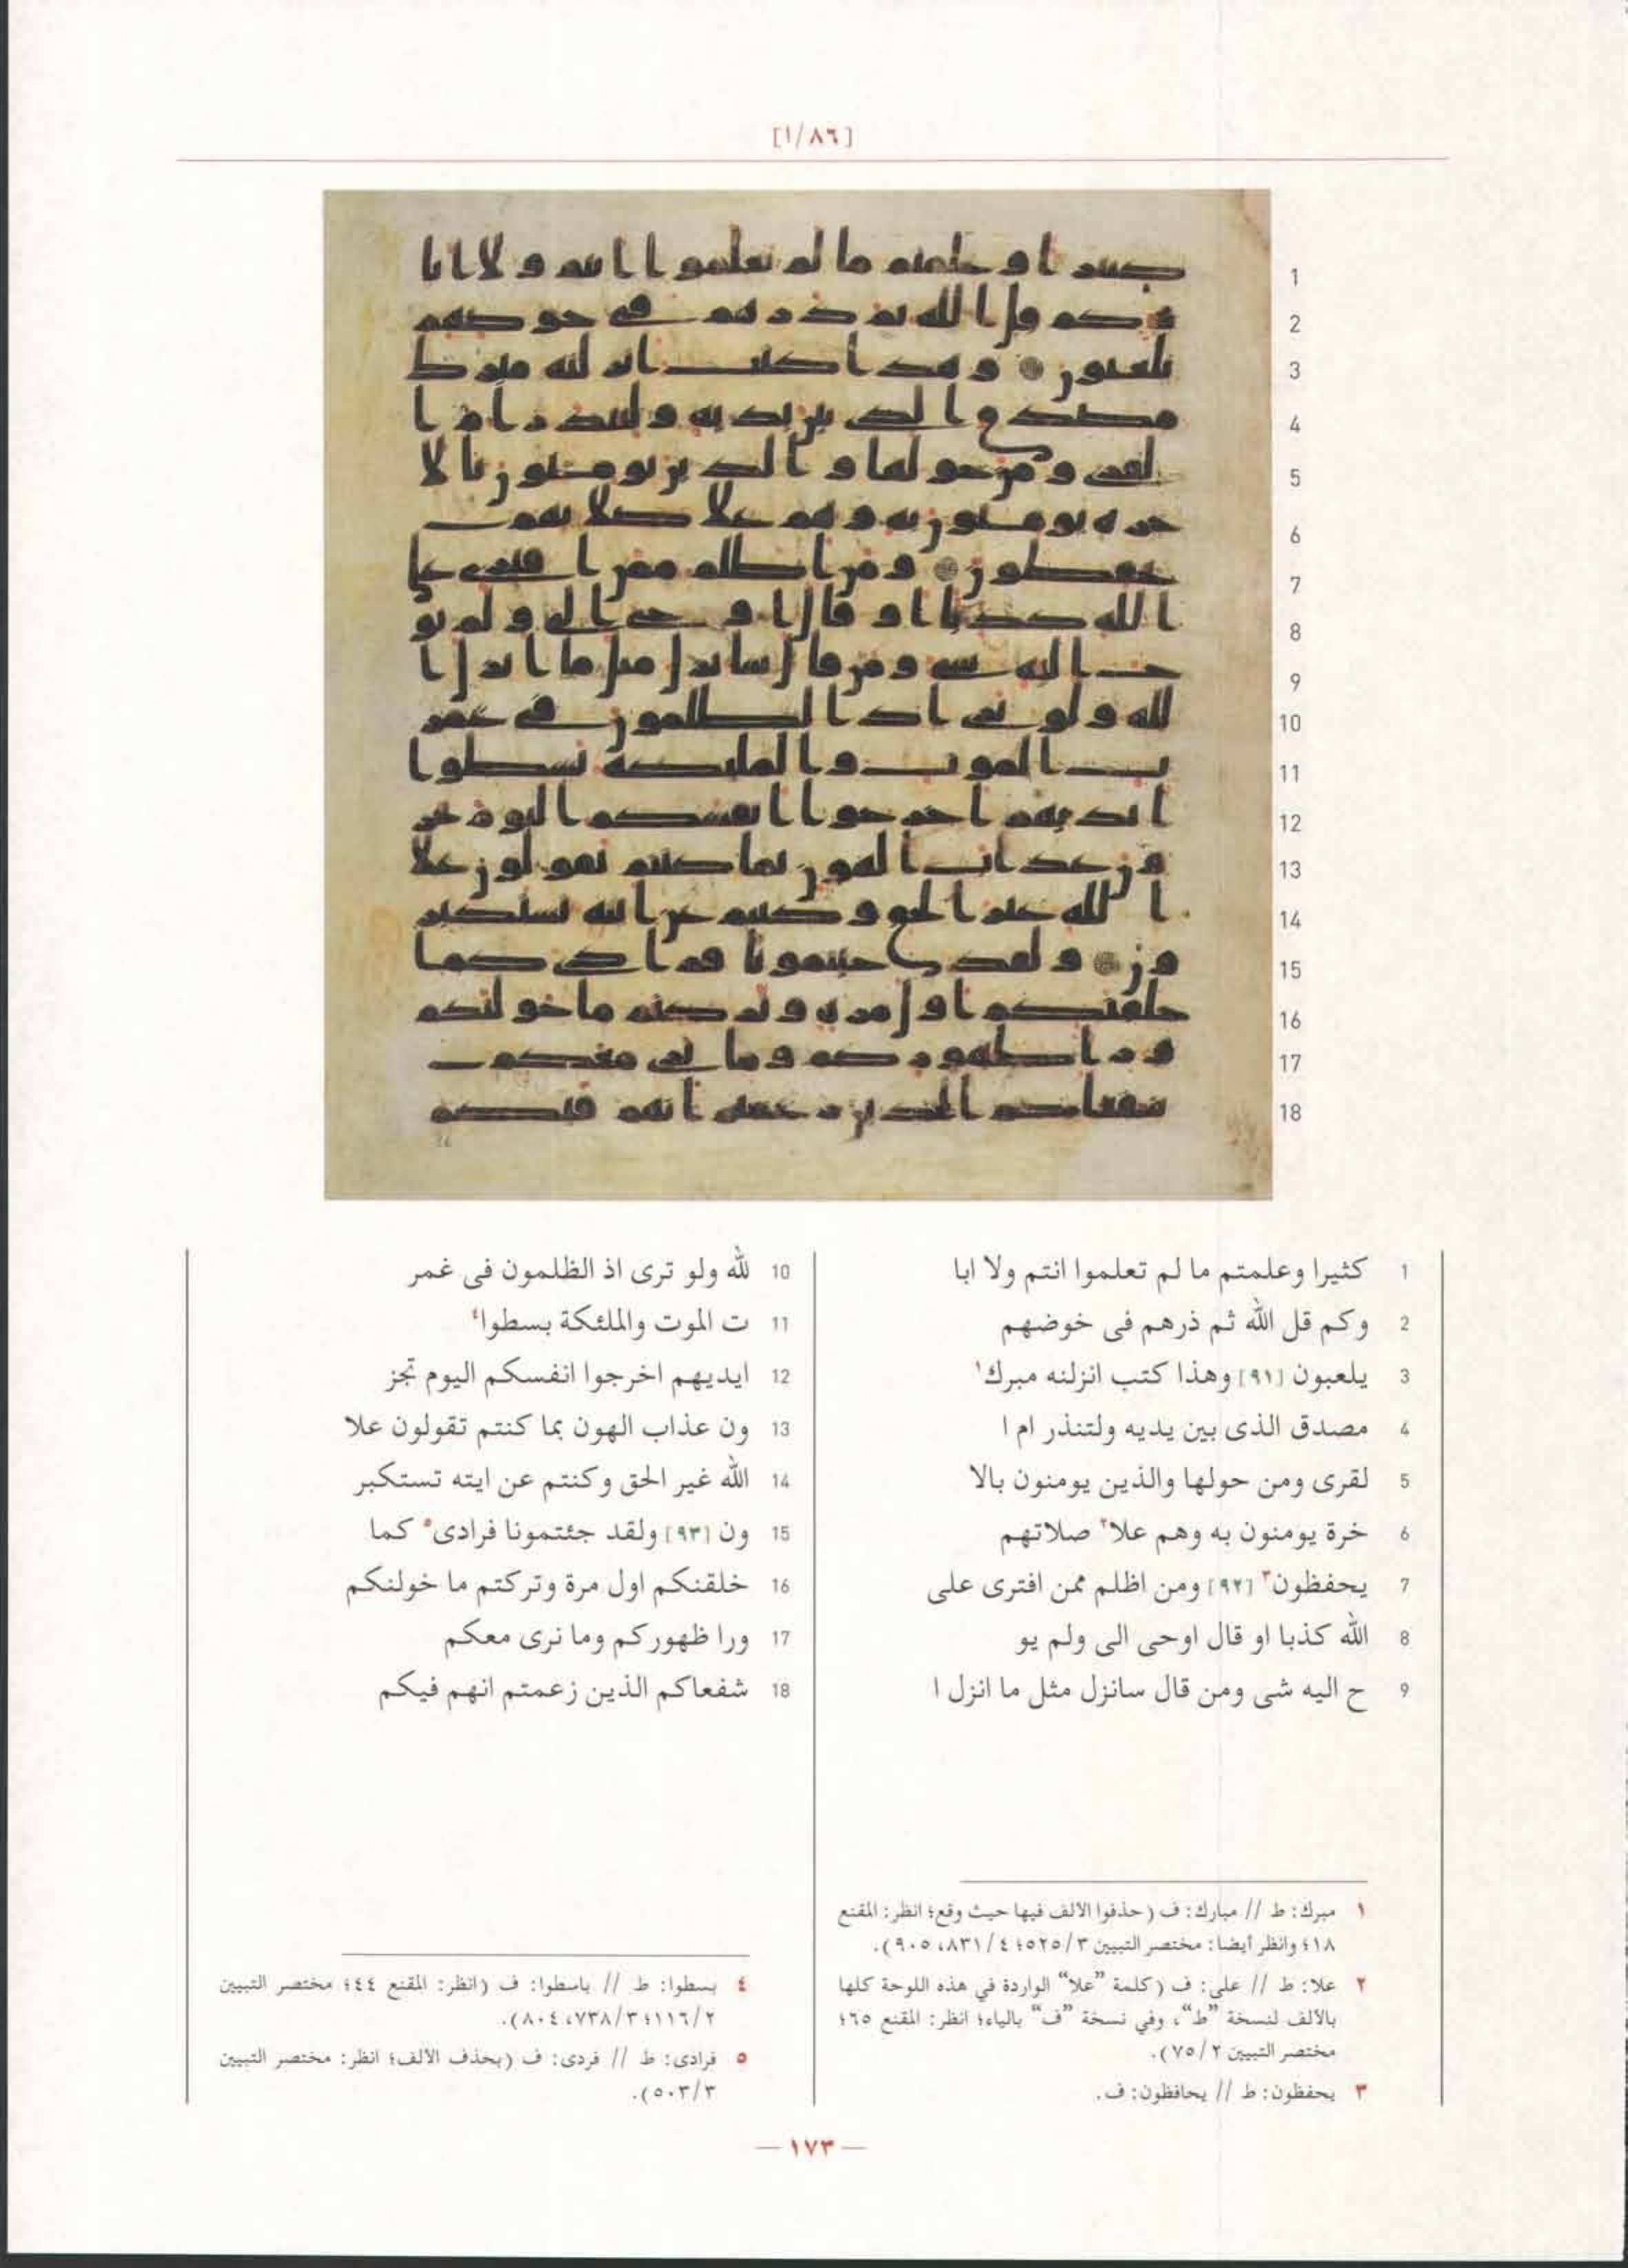 [١/٨٦]
1 كثيرا وعلمتم ما لم تعلموا انتم ولا ابا
2 وكم قل الله ثم ذرهم فى خوضهم
3 يلعبون [٩١] وهذا كتب انزلنه مبرك١
4 مصدق الذى بين يديه ولتنذر ام ا
5 لقرى ومن حولها والذين يومنون بالا
6 خرة يومنون به وهم علا٢ صلاتهم
7 يحفظون٣ [٩٢] ومن اظلم ممن افترى على
8 الله كذبا او قال اوحى الى ولم يو
9 ح اليه شى ومن قال سانزل مثل ما انزل ا
10 لله ولو ترى اذ الظلمون فى غمر
11 ت الموت والملئكة بسطوا٤
12 ايديهم اخرجوا انفسكم اليوم تجز
13 ون عذاب الهون بما كنتم تقولون علا
14 الله غير الحق وكنتم عن ايته تستكبر
15 ون [٩٣] ولقد جئتمونا فرادى٥ كما
16 خلقنكم اول مرة وتركتم ما خولنكم
17 ورا ظهوركم وما نرى معكم
18 شفعاكم الذين زعمتم انهم فيكم
١ مبرك: ط // مبارك: ف (حذفوا الالف فيها حيث وقع؛ انظر: المقنع
١٨؛ وانظر أيضا: مختصر التبيين ٥٢٥/٣؛ ٨٣١/٤، ٩٠٥).
٢ علا: ط // على: ف (كلمة ”علا“ الواردة في هذه اللوحة كلها
بالألف لنسخة ”ط“، وفي نسخة ”ف“ بالياء؛ انظر: المقنع ٦٥؛
مختصر التبيين ٧٥/٢).
٣ يحفظون: ط // يحافظون: ف.
٤ بسطوا: ط // باسطوا: ف (انظر: المقنع ٤٤؛ مختصر التبيين
١١٦/٢؛ ٧٣٨/٣، ٨٠٤).
٥ فرادى: ط // فردى: ف (بحذف الالف؛ انظر: مختصر التبيين
٥٠٣/٣).
— ١٧٣ —